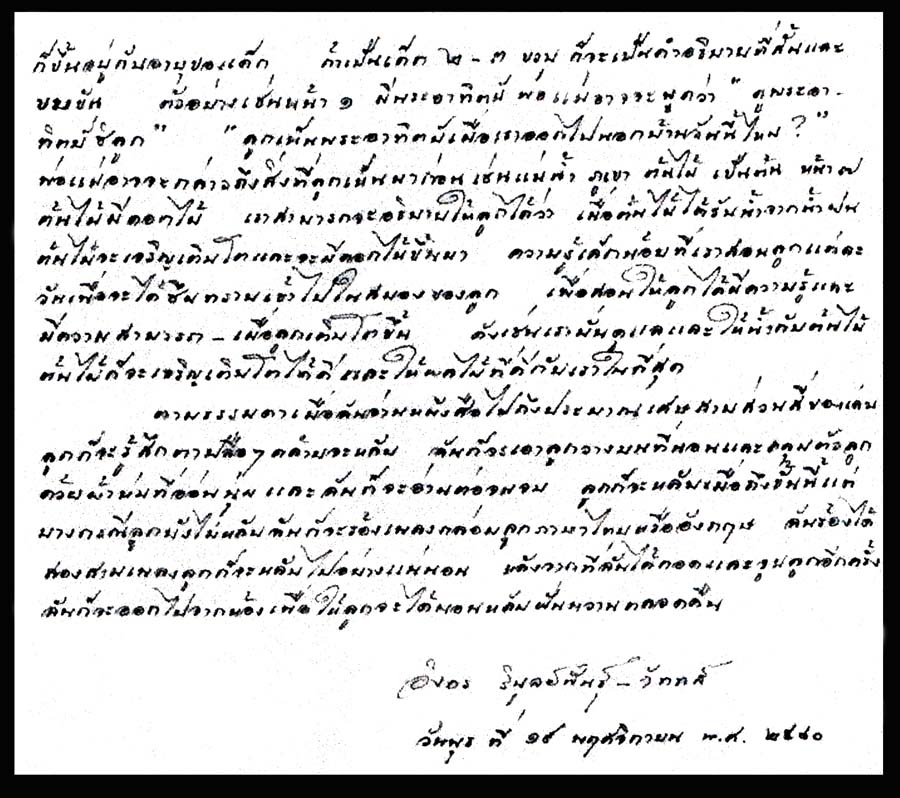 ก็ขึ้นอยู่กับอายุของเด็ก ถ้าเป็นเด็ก ๒ - ๓ ขวบ ก็จะเป็นคำอธิบายที่สั้นและ
ขบขัน ตัวอย่างเช่นหน้า ๑ มีพระอาทิตย์ พ่อแม่อาจจะพูดว่า " ดูพระอา -
ทิตย์ ซิลูก " " ลูกเห็นพระอาทิตย์เมื่อเราออกไปนอกบ้านวันนี้ไหม ? "
พ่อแม่อาจจะกล่าวถึงสิ่งที่ลูกเห็นมาก่อน เช่นแม่น้ำ ภูเขา ต้นไม้ เป็นต้น หน้า ๗
ต้นไม้มีดอกไม้ เราสามารถจะอธิบายให้ลูกได้ว่า เมื่อต้นไม้ได้รับน้ำจากน้ำฝน
ต้นไม้จะเจริญเติบโตและจะมีดอกไม้ขึ้นมา ความรู้เล็กน้อยที่เราสอนลูกแต่ละ
วันเพื่อจะได้ซึมทราบเข้าไปในสมองของลูก เพื่อสอนให้ลูกได้มีความรู้และ
มีความสามารถ - เมื่อลูกเติบโตขึ้น ดังเช่นเราหมั่นดูแลและให้น้ำกับต้นไม้
ต้นไม้ก็จะเจริญเติบโตได้ดี และให้ผลไม้ที่ดีกับเราในที่สุด
ตามธรรมดาเมื่อฉันอ่านหนังสือไปถึงประมาณเศษสามส่วนสี่ของเล่ม
ลูกก็จะรู้สึกตาปรือๆ คล้ายจะหลับ ฉันก็จะเอาลูกวางบนที่นอนและคลุมตัวลูก
ด้วยผ้าห่มที่อ่อนนุ่ม และฉันก็จะอ่านต่อจนจบ ลูกก็จะหลับเมื่อถึงขั้นนี้ แต่
บางกรณีลูกยังไม่หลับฉันก็จะร้องเพลงกล่อมลูกภาษาไทยหรืออังกฤษ ฉันร้องได้
สองสามเพลงลูกก็จะหลับไปอย่างแน่นอน หลังจากที่ฉันได้กอดและจูบลูกอีกครั้ง
ฉันก็จะออกไปจากห้องเพื่อให้ลูกจะได้นอนหลับฝันหวานตลอดคืน
วันพุธ ที่ ๑๙ พฤศจิกายน พ.ศ. ๒๕๔๐